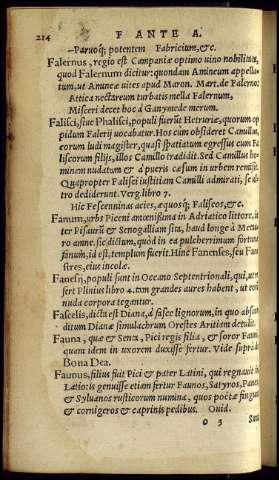 214 F ANTE A.
—Paruoq; potentem Fabricium, &c.
Falernus, regio est Campaniæ optimo uino nobilitata,
quod Falernum dicitur: quondam Amineum appella-
tum, ut Amineæ uites apud Maron. Mart. de Falerno:
Attica nectareum turbatis mella Falernum,
Misceri decet hoc à Ganymede merum.
Falisci, siue Phalisci, populi fuerūt Hetruriæ, quorum op
pidum Falerij uocabatur. Hos cum obsideret Camillus,
eorum ludi magister, quasi spatiatum egressus cum Fa
liscorum filijs, illos Camillo tradidit. Sed Camillus ho-
minem nudatum & à pueris cæsum in urbem remisit.
Quapropter Falisci iustitiam Camilli admirati, se ul-
tro dediderunt. Verg. libro 7.
Hic Fescenninas acies, æquosq; Faliscos, &c.
Fanum, urbs Piceni amœnissima in Adriatico littore, in
ter Pisaurū & Senogalliam sita, haud longe à Metau
ro amne. sic dictum, quòd in ea pulcherrimum fortunæ
fanum, id est, templum fuerit. Hinc Fanenses, seu Fane
stres, eius incolæ.
Fanesij, populi sunt in Oceano Septentrionali, qui, ut re
fert Plinius libro 4. tam grandes aures habent, ut eis
nuda corpora tegantur.
Fascelis, dicta est Diana, à fasce lignorum, in quo abscon
ditum Dianæ simulachrum Orestes Aritiam detulit.
Fauna, quæ & Senta, Pici regis filia, & soror Fauni,
quam idem in uxorem duxisse fertur. Vide suprà de
Bona Dea.
Faunus, filius fuit Pici & pater Latini, qui regnauit in
Latio: is genuisse etiam fertur Faunos, Satyros, Panes,
& Syluanos rusticorum numina, quos poëtæ fingunt
& cornigeros & caprinis pedibus. Ouid.
O 3